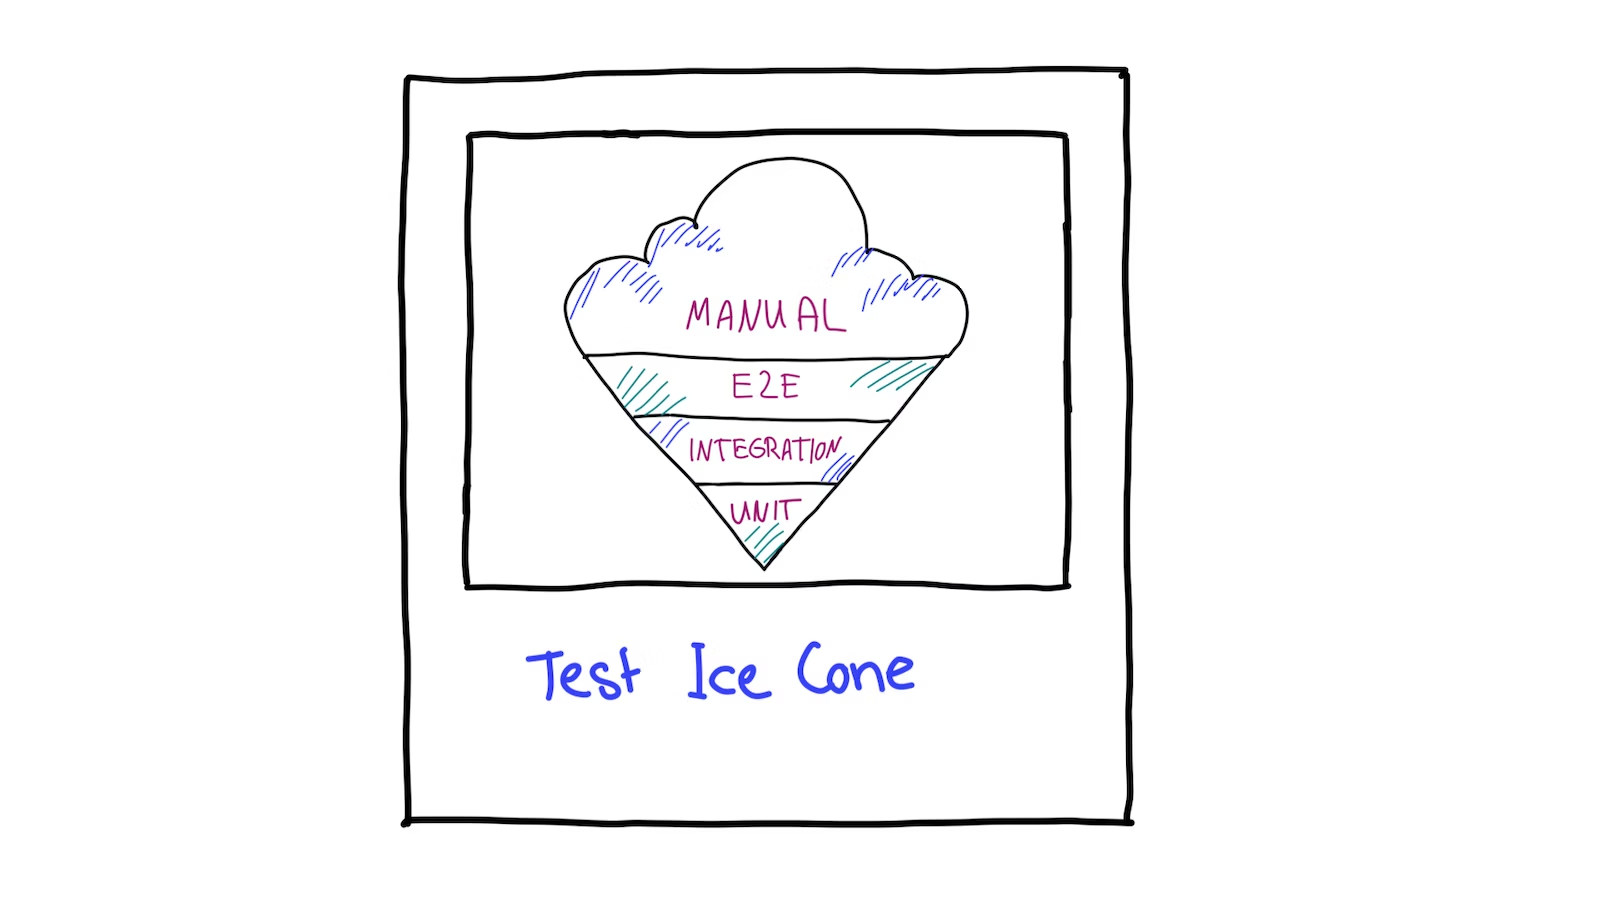 MANUAL
E2E
INTEGRATION
UNIT
Test Ice Cone